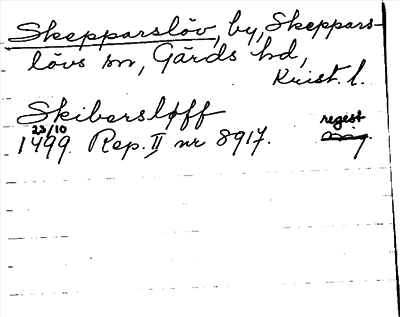 Skepparslöv, by, Skeppars-
lövs sn, Gärds hd,
Krist. l.
Skibersløff
23/10
1499. Rep. II nr 8917.
regist